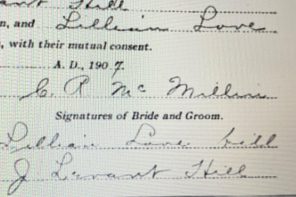 Hill
n, and Lillian Love
, with their mutual consent.
A. D., 1907.
C. P. McMillin
Signatures of Bride and Groom.
Lillian Love Hill
J Levant Hill